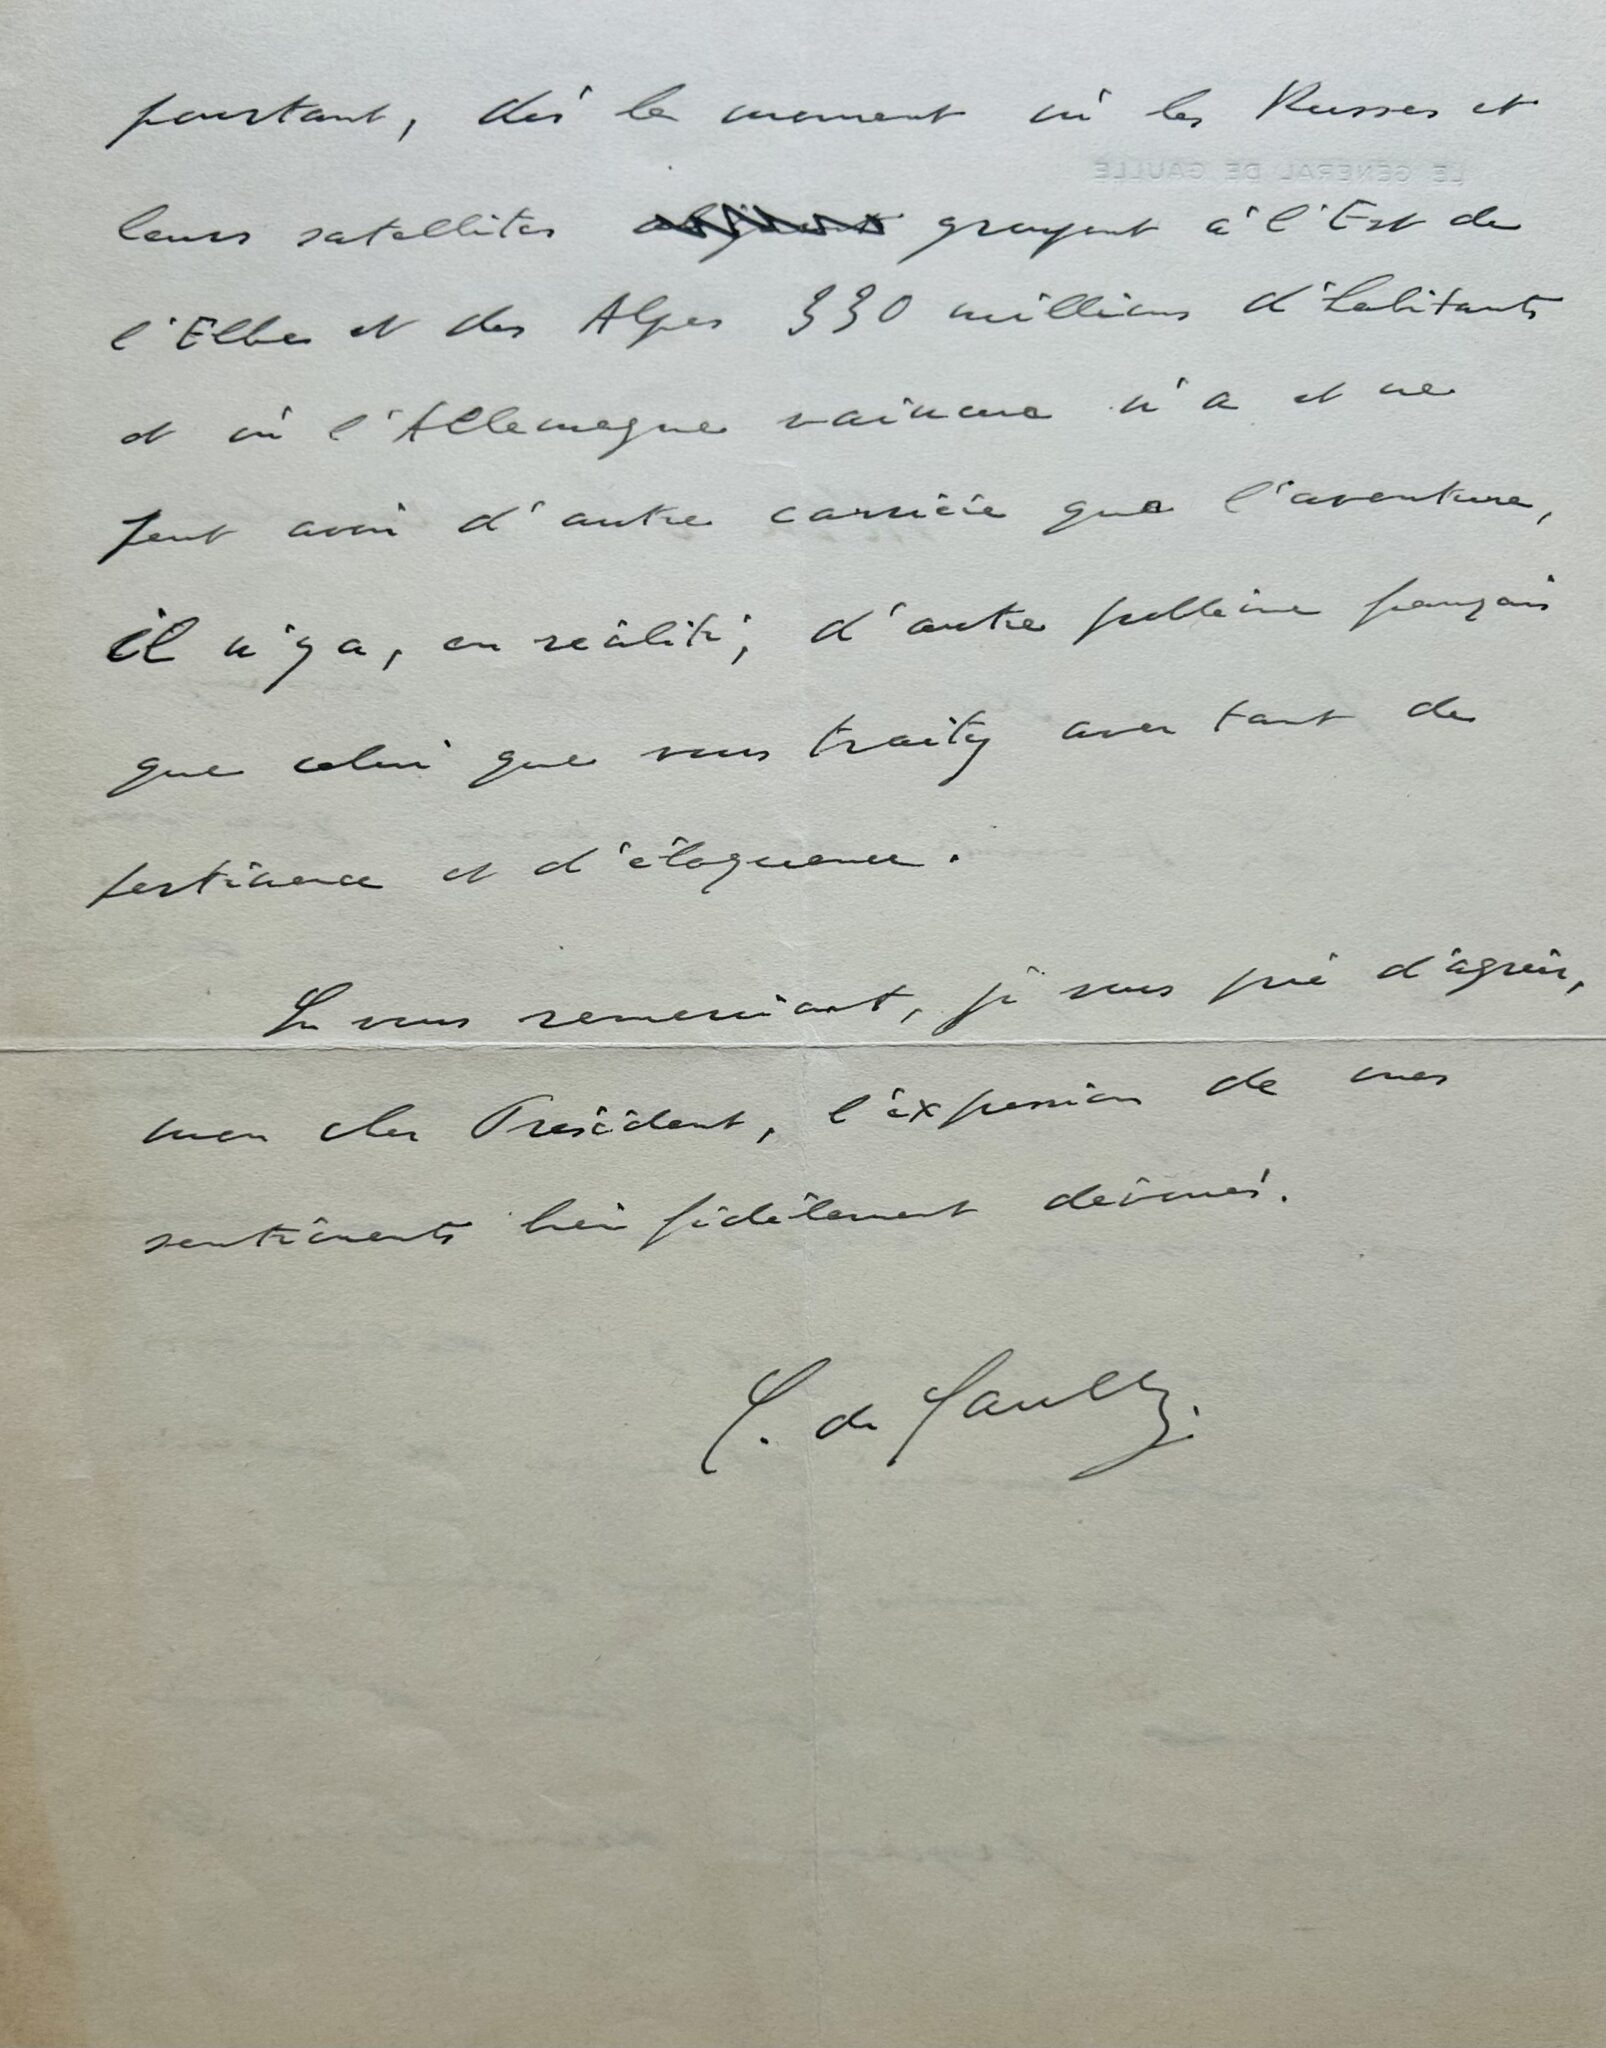 pourtant, dès le moment où les Russes et
LE GÉNÉRAL DE GAULLE
leurs satellites groupent à l'Est de
l'Elbe et des Alpes 330 millions d'habitants
et où l'Allemagne vaincue n'a et ne
peut avoir d'autre carrière que l'aventure,
il n'y a, en réalité, d'autre problème français
que celui que vous traitez avec tant de
pertinence et d'éloquence.
En vous remerciant, je vous prie d'agréer,
mon cher Président, l'expression de mes
sentiments bien fidèlement dévoués.
C. de Gaulle.